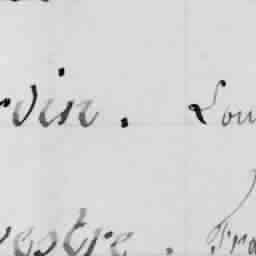 rvin. Lou
vestre. Fra